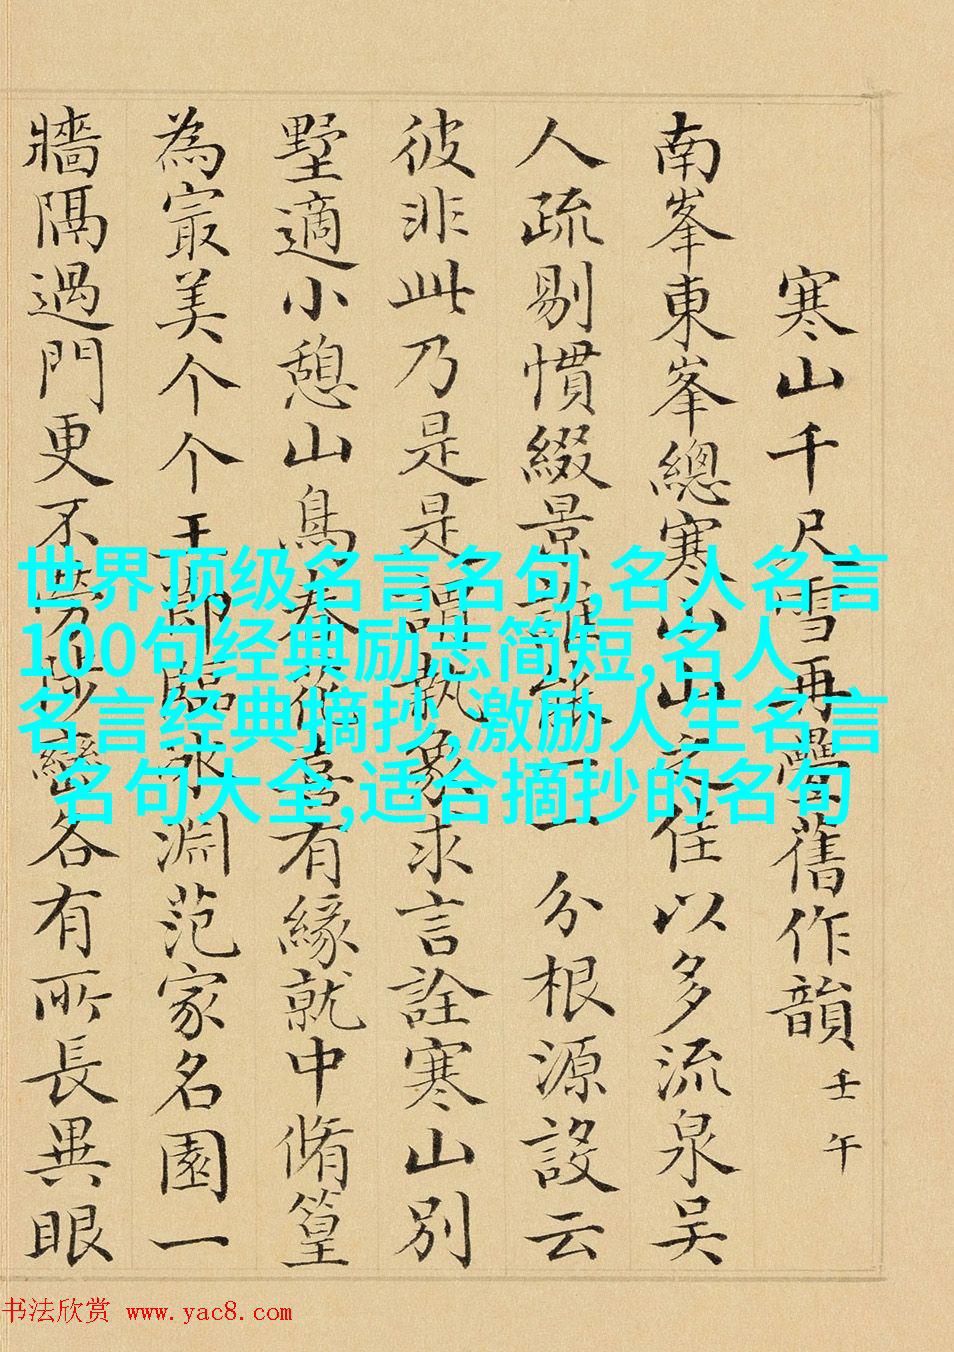 寒山千尺雪再疊舊作韻 壬午
南峯東峯總寒山山之佳以多流泉吳
人疏剔慣綴景誰能一一分根源設云
彼非此乃是是謂執象求言詮寒山別
墅適小憩山鳥春喜有緣就中脩篁
為㝡美个个王郎臨冰淵范家名園一
牆隔過門更不勞陟巒各有所長異眼
世界顶级名言名句,名人名言
100句经典励志简短,名人
名言经典摘抄,激励人生名言
名句大全,适合摘抄的名句
书法欣赏 www.yac8.com